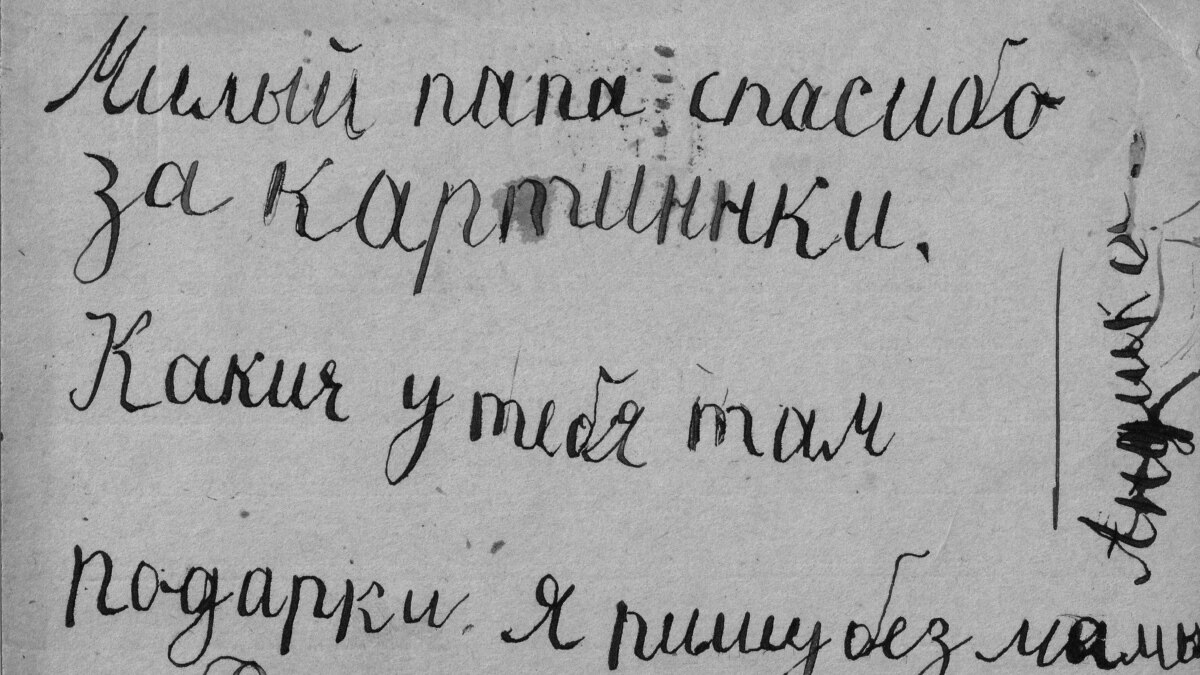 Милый папа спасибо
за картиннки.
Какия у тебя там
подарки. Я пишу без мамы